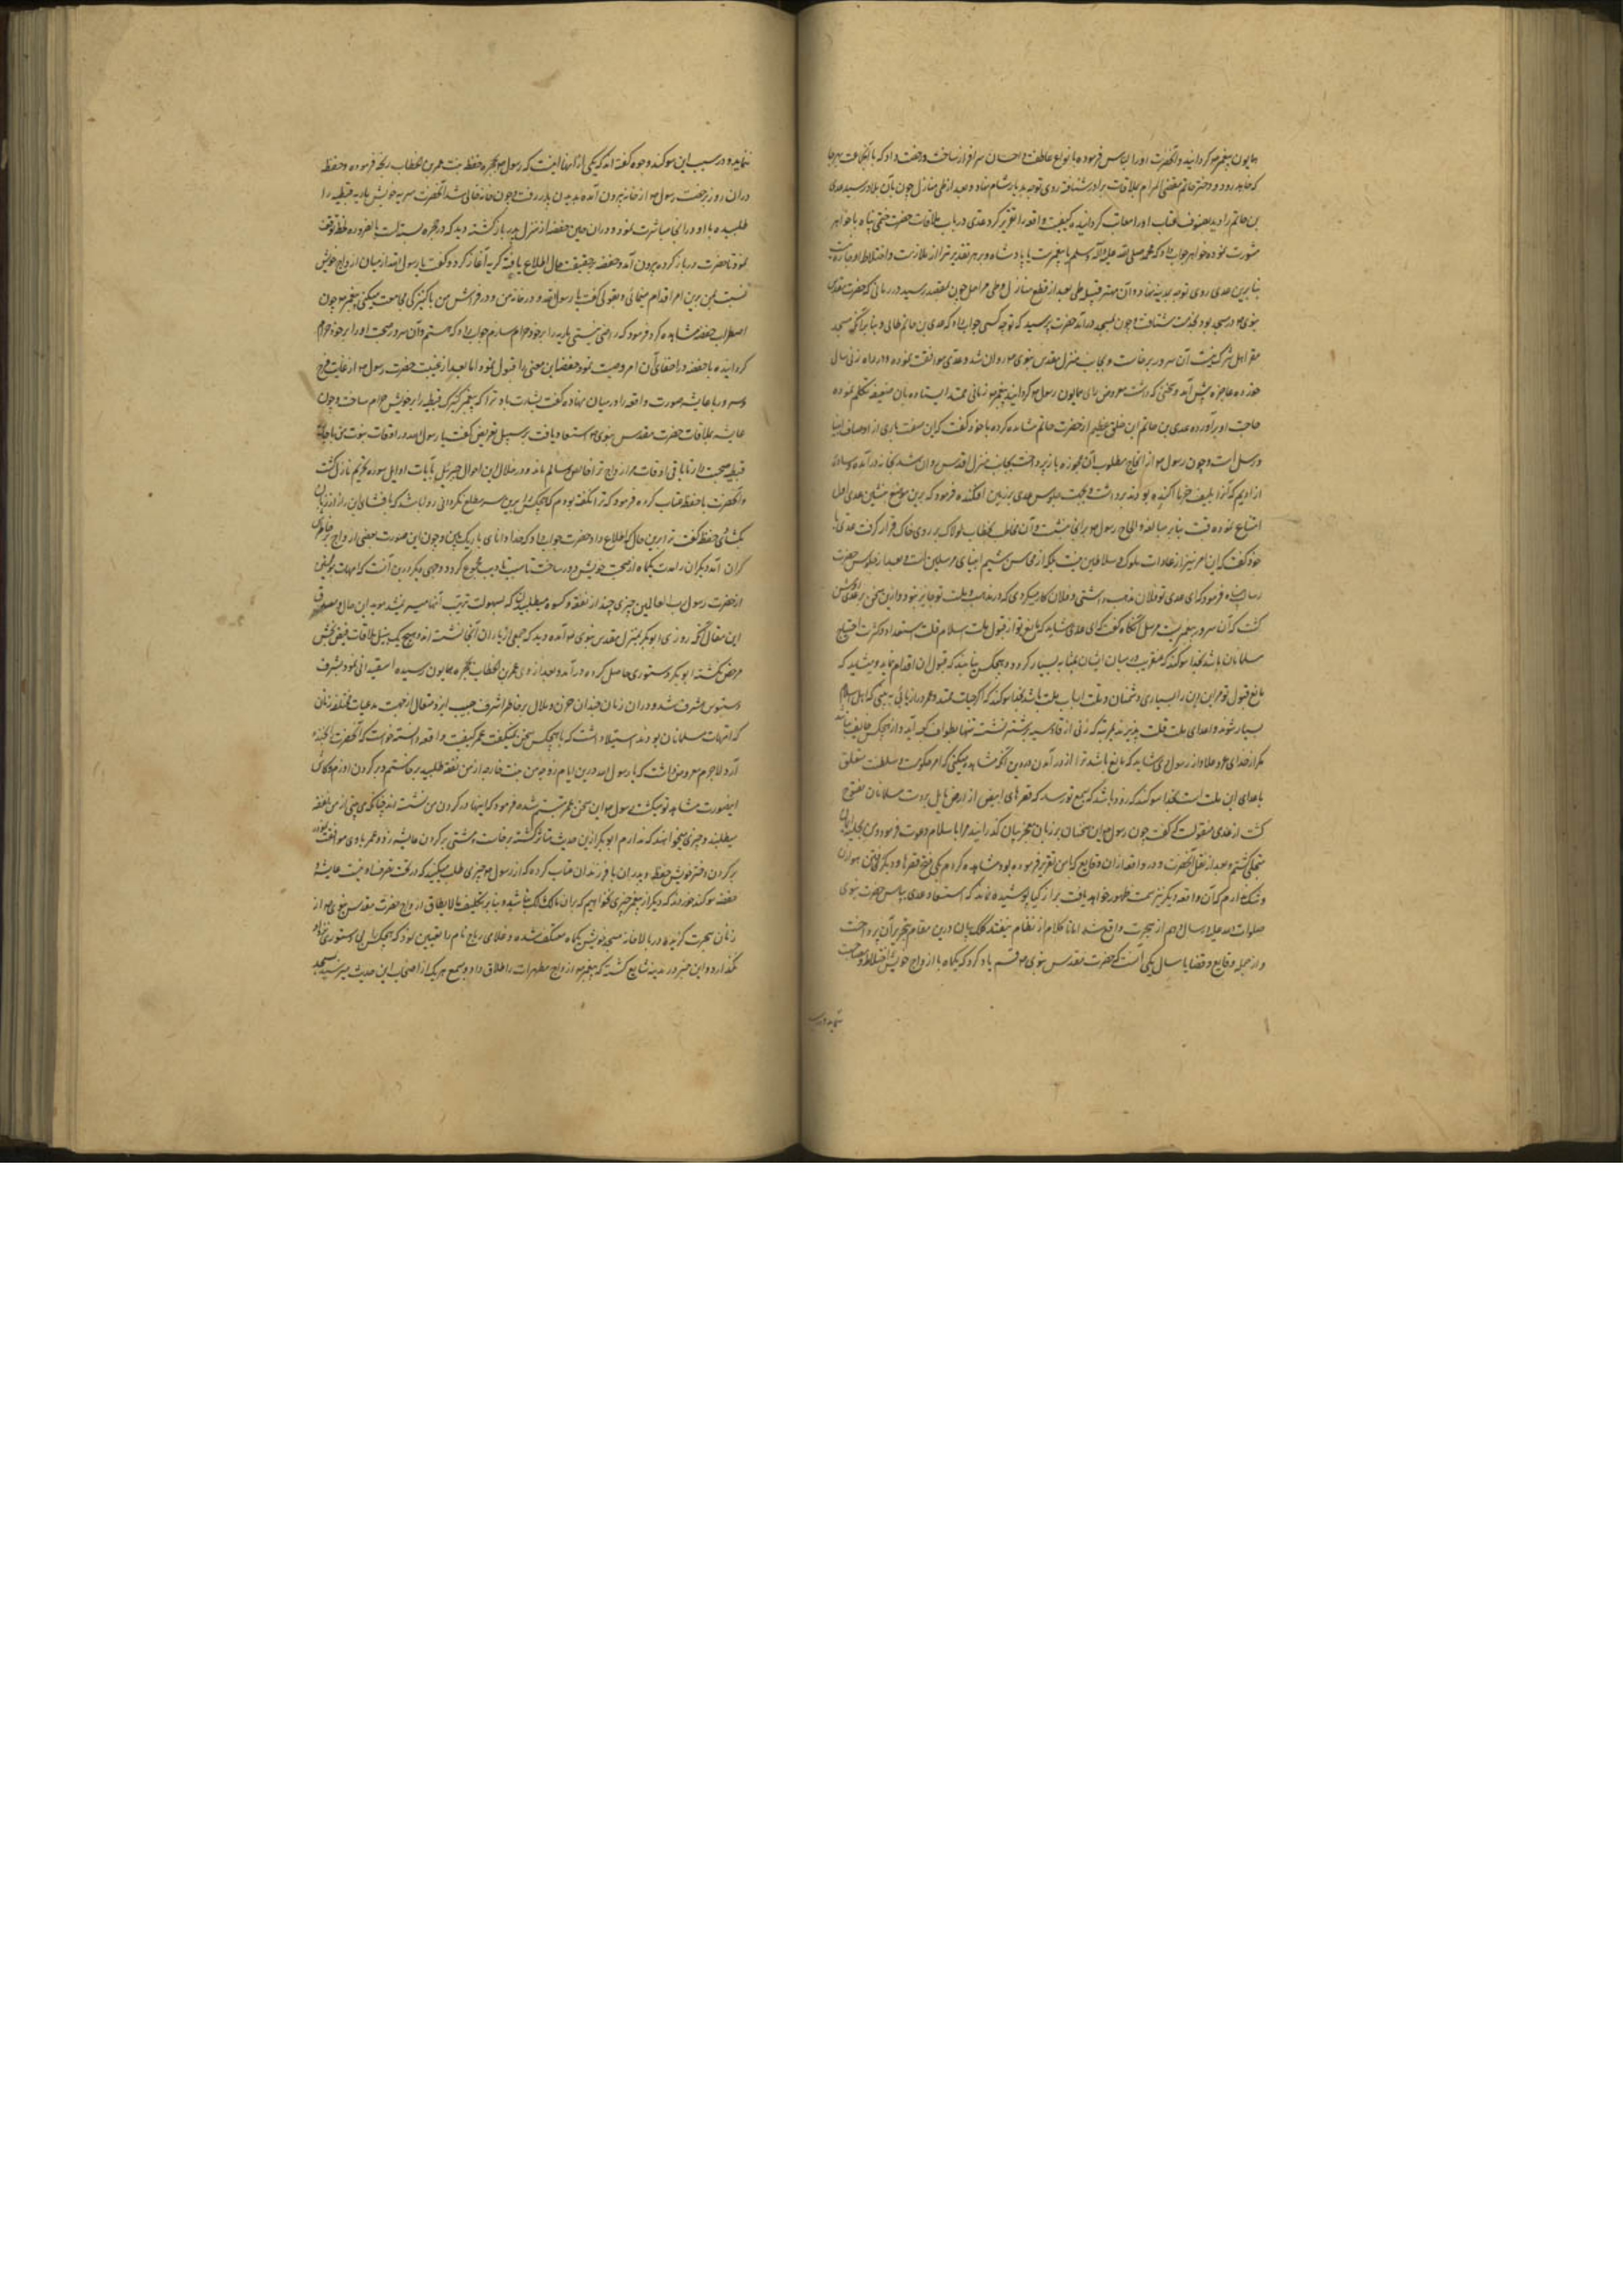 همایون پیغمبر گردانید و آنحضرت او را لباس فرموده بانواع عاطفت و احسان سرافراز ساخت و رخصت داد که با آن جماعت بهرجا
که خاهد رود و دختر حاتم مقضی المرام بملاقات برادر شتافته روی توجه بدیار شام نهاد و بعد از طی منازل چون بآن بلاد رسید عدی
بن حاتم را دید بصنوف عتاب او را معاتب گردانیده کیفیت واقعه را تقریر کرد عدی در باب ملاقات حضرت ختمی پناه با خواهر
مشورت نموده خواهر جواب داد که محمد صلی الله علیه و آله وسلم یا پیغمبرست یا پادشاه و بر هر تقدیر ترا از ملازمت و اختلاط او چاره نیست
بنابرین عدی روی توجه بمدینه نهاد و آن مهتر قبیله طی بعد از قطع منازل و طی مراحل چون بمقصد رسید در زمانی که حضرت مقدس
نبوی در مسجد بود بخدمت شتافت و چون بمسجد درآمد حضرت پرسید که توچه کسی جواب داد که عدی بن حاتم طائی و بنابر آنکه مسجد
مقر اهل شرک نیست آن سرور برخاست و بجانب منزل مقدس نبوی روان شد و عدی موافقت نموده و در راه زنی سال
خورده عاجزه پیش آمد و سخنی که داشت معروض رای همایون رسول گردانید پیغمبر زمانی ممتد ایستاده بآن ضعیفه تکلم نموده
حاجت او برآورده عدی بن حاتم این خلق عظیم از حضرت خاتم مشاهده کرده با خود گفت که این صفت باری از اوصاف انبیا
و رسل است و چون رسول از انجاح مطلوب آن عجوزه باز پرداخت بجانب منزل اقدس روان شد بخانه درآمده وساده
از ادیم که آنرا بلیف خرما آکنده بودند برداشت و بجهت جلوس عدی بر زمین افکنده فرمود که برین موضع بنشین عدی اول
امتناع نموده عاقبت بنابر مبالغه و الحاح رسول بر آنجا نشست و آن مخاطب بخطاب لولاک بر روی خاک قرار گرفت عدی با
خود گفت که این امر نیز از عادات ملوک و سلاطین نیست بلکه از محاسن شیم انبیای مرسلین است و بعد از جلوس حضرت
رسالت پناه فرمود که ای عدی تو فلان مذهب داشتی و فلان کار میکردی که در مذهب و ملت تو جایز نبود و ازین سخن بر عدی روشن
گشت که آن سرور پیغمبریست مرسل آنگاه گفت که ای عدی شاید که مانع تو از قبول ملت اسلام قلت استعداد و کثرت احتیاج
مسلمانان باشد بخدا سوگند که عنقریب در میان ایشان مال بمثابه بسیار گردد و هیچکس نیابند که قبول آن اقدام نماید و میشاید که
مانع قبول تو مر این دین را بسیاری دشمنان و قلت ارباب ملت باشد بخدا سوگند که اگر حیات ممتد و عمر دراز یابی ببینی که اهل اسلام
بسیار شوند و اعدای ملت قلت پذیرند بمرتبه که زنی از قادسیه بر شتر نشسته تنها بطواف کعبه آید و از هیچکس خایف نباشد
مگر از خدای عز و علا و از رسول وی شاید که مانع باشد ترا از در آمدن درین دین آنکه مشاهده میکنی که امر حکومت و سلطنت متعلق
باعدای این ملت است بخدا سوگند که زود باشد که بسمع تو رسد که قصرهای ابیض از ارض بابل بر دست مسلمانان مفتوح
گشت از عدی منقولست که گفت چون رسول این سخنان بر زبان معجز بیان گذرانید مرا باسلام دعوت فرمود و من بحلیه ایمان
متجلی گشتم و بعد از نقل آنحضرت دو واقعه از آن وقایع که با من تقریر فرموده بود مشاهده کردم یکی فتح قصرها و دیگر
و شک ندارم که آن واقعه دیگر نیز سمت ظهور خواهد یافت بر ازکیا پوشیده نماند که استسعاد عدی بپابوس حضرت نبوی
صلوات الله علیه در سال دهم از هجرت واقع شد اما تا کلام از نظام نیفتد کلک بیان درین مقام بتحریر آن پرداخت
و از جمله وقایع و قضایا سال یکی آنست که حضرت مقدس نبوی قسم یاد کرد که یکماه با ازواج خویش اختلاط و مصاحبت
ننماید و در سبب
ننماید و در سبب این سوگند وجوه گفته اند که یکی از آنها اینست که رسول بحجره حفصه بنت عمر بن الخطاب رنجه فرموده و حفصه
در آن روز برخصت رسول از خانه بیرون آمده بدیدن پدر رفت و چون خانه خالی شد آنحضرت سریه خویش ماریه قبطیه را
طلبیده با او در آنجا مباشرت نمود و در آن حین حفصه از منزل پدر باز گشته دید که در حجره بسته است بالضروره لحظه توقف
نمود تا حضرت در باز کرده بیرون آمد و حفصه بر حقیقت حال اطلاع یافته گریه آغاز کرد و گفت یا رسول الله از میان ازواج خویش
نسبت بمن برین امر اقدام مینمائی و بقولی گفت یا رسول الله در خانه من و در فراش من با کنیزکی مباشرت میکنی پیغمبر چون
اضطراب حفصه مشاهده کرد فرمود که راضی نیستی ماریه را بر خود حرام سازم جواب داد که هستم و آن سرور صحبت او را بر خود حرام
گردانیده با حفصه در اخفای آن امر وصیت نمود حفصه این معنی را قبول نمود اما بعد از غیبت حضرت رسول از غایت فرح
و سرور با عایشه صورت واقعه را در میان نهاده گفت بشارت باد ترا که پیغمبر کنیزک قبطیه را بر خویش حرام ساخت و چون
عایشه بملاقات حضرت مقدس نبوی استسعاد یافت بر سبیل تعریض گفت یا رسول الله در اوقات نوبت من با ماریه
قبطیه صحبت دار تا باقی اوقات مر ازواج ترا خالص و سالم ماند و در خلال این احوال جبرئیل بآیات اوایل سوره تحریم نازل گشت
و آنحضرت با حفصه عتاب کرده فرمود که ترا نگفته بودم که هیچکس را برین سر مطلع نگردانی روا باشد که بافشای این راز زبان
بگشائی حفصه گفت ترا برین حال که اطلاع داد حضرت جواب داد که خدا دانای باریک بین و چون این صورت بعضی از ازواج بر خاطرش
گران آمد دیگران را مدت یکماه از صحبت خویش دور ساخت تا سبب تادیب مجموع گردد و وجهی دیگر درین آنست که امهات مؤمنین
از حضرت رسول رب العالمین چیزی چند از نفقه و کسوه میطلبیدند که بسهولت ترتیب آنها میسر نمیشد موید این حال و مصدق
این مقال آنکه روزی ابوبکر بمنزل مقدس نبوی آمده دید که جمعی از یاران آنجا نشسته اند و هیچ یک بنیل ملاقات فیض بخش
مرخص نگشته ابوبکر دستوری حاصل کرده درآمد و بعد از وی عمر بن الخطاب بحجره همایون رسیده استیذان نمود بشرف
دستبوس مشرف شد و در آن زمان چندان حزن و ملال بر خاطر اشرف حبیب ایزد متعال از جهت مدعیات مختلفه زنان
که امهات مسلمانان بودند استیلا داشت که با هیچکس سخن نمیگفت عمر کیفیت واقعه دانسته خواست که آنحضرت را بخنده
آرد لاجرم معروض داشت که یا رسول الله درین ایام زوجه من بنت خارجه از من نفقه طلبید برخاستم و بر گردن او زدم و کاش
اینصورت مشاهده تو میگشت رسول از این سخن عمر متبسم شده فرمود که اینها در گرد من نشسته اند چنانکه می بینی از من نفقه
میطلبند و چیزی میخواهند که ندارم ابوبکر از این حدیث متاثر گشته برخاست و مشتی بر گردن عایشه زد و عمر با وی موافقت نموده
بر گردن دختر خویش حفصه و پدران با فرزندان عتاب کرده که از رسول چیزی طلب میکنید که در تحت تصرف او نیست عایشه و
حفصه سوگند خوردند که دیگر از پیغمبر چیزی نخواهیم که بر آن مالک نباشد و بنابر تکلیف مالایطاق ازواج حضرت مقدس نبوی از
زنان هجرت گزیده در بالاخانه مسجد خویش یکماه معتکف شده و غلامی رباح نام را تعیین نمود که هیچکس را بی دستوری نزد او
نگذارد و این خبر در مدینه شایع گشته که پیغمبر ازواج مطهرات را طلاق داد و بسمع هر یک از اصحاب این حدیث میرسید بمسجد